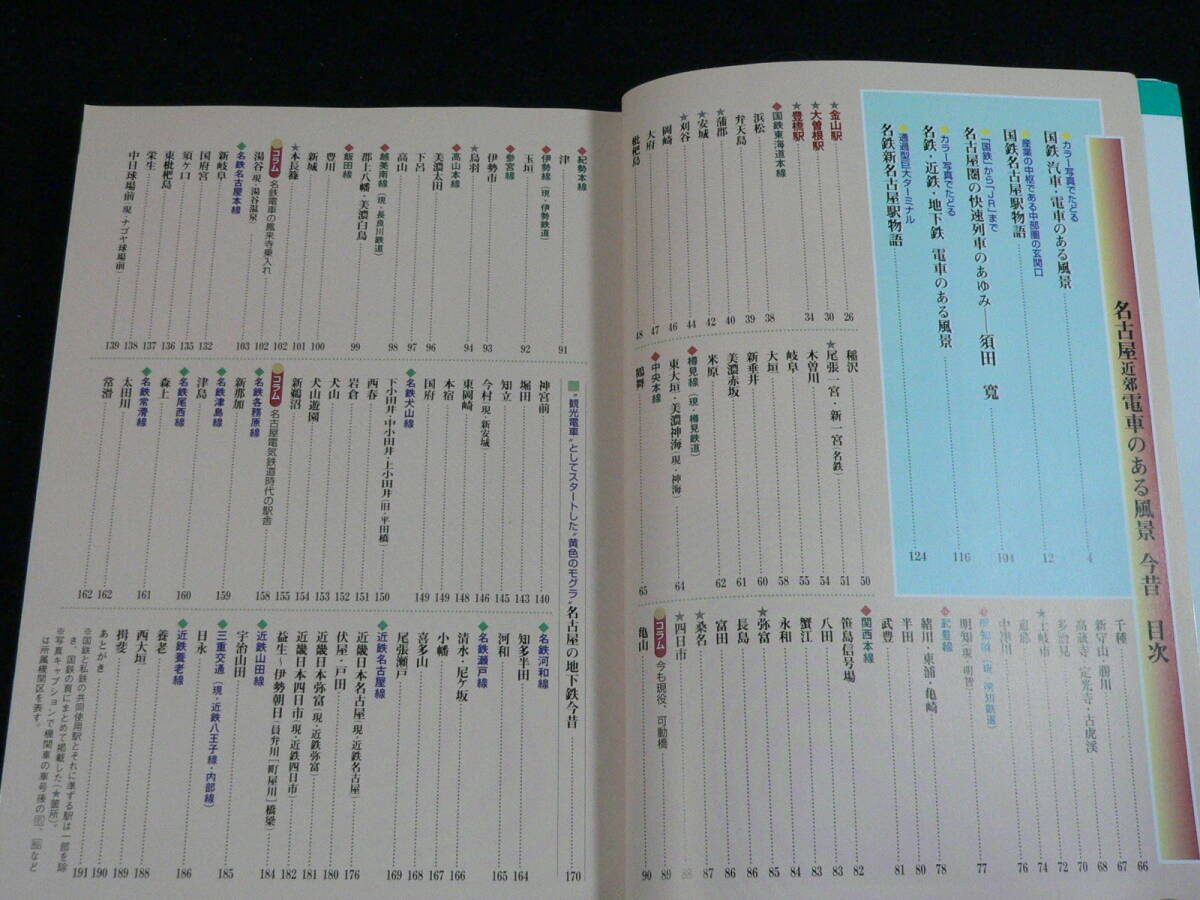 名古屋近郊電車のある風景 今昔 目次
カラー写真でたどる
国鉄 汽車・電車のある風景 4
産業の中枢である中部圏の玄関口
国鉄名古屋駅物語 12
「国鉄」から「JR」まで
名古屋圏の快速列車のあゆみ――須田 寛 104
カラー写真でたどる
名鉄・近鉄・地下鉄 電車のある風景 116
通過型巨大ターミナル
名鉄新名古屋駅物語 124
★金山駅 26
★大曽根駅 30
★豊橋駅 34
◆国鉄東海道本線
浜松 38
弁天島 39
★蒲郡 40
★安城 42
★刈谷 44
岡崎 46
大府 47
枇杷島 48
稲沢 50
★尾張一宮・新一宮(名鉄) 51
木曽川 54
岐阜 55
大垣 58
新垂井 60
美濃赤坂 61
米原 62
◆樽見線(現・樽見鉄道)
東大垣・美濃神海(現・神海) 64
◆中央本線
鶴舞 65
千種 66
新守山・勝川 67
高蔵寺・定光寺・古虎渓 68
多治見 70
★土岐市 72
恵那 74
中津川 76
◆明知線(現・明知鉄道)
明知(現・明智) 77
◆武豊線
緒川・東浦・亀崎 78
半田 80
武豊 81
◆関西本線
笹島信号場 82
八田 83
蟹江 83
永和 84
★弥富 85
長島 86
富田 86
★桑名 87
★四日市 88
コラム 今も現役、可動橋 89
亀山 90
◆紀勢本線
津 91
◆伊勢線(現・伊勢鉄道)
玉垣 92
◆参宮線
伊勢市 93
★鳥羽 94
◆高山本線
美濃太田 96
下呂 97
高山 98
◆越美南線(現・長良川鉄道)
郡上八幡・美濃白鳥 99
◆飯田線
豊川 100
新城 101
★本長篠 102
コラム 名鉄電車の鳳来寺乗入れ 102
湯谷(現・湯谷温泉) 103
◆名鉄名古屋本線
新岐阜 132
国府宮 135
須ヶ口 136
東枇杷島 137
栄生 138
中日球場前(現・ナゴヤ球場前) 139
神宮前 140
堀田 143
知立 145
今村(現・新安城) 146
東岡崎 148
本宿 149
国府 149
◆名鉄犬山線
下小田井・中小田井・上小田井(旧・平田橋) 150
西春 151
岩倉 152
犬山 153
犬山遊園 154
新鵜沼 155
コラム 名古屋電気鉄道時代の駅舎 158
◆名鉄各務原線
新那加
◆名鉄津島線
津島 159
◆名鉄尾西線
森上 160
◆名鉄常滑線
太田川 161
常滑 162
162
■“観光電車”としてスタートした“黄色のモグラ”名古屋の地下鉄今昔 170
◆名鉄河和線
知多半田 164
河和 165
◆名鉄瀬戸線
清水・尼ケ坂 166
小幡 167
喜多山 168
尾張瀬戸 169
◆近鉄名古屋線
近畿日本名古屋(現・近鉄名古屋) 176
伏屋・戸田 180
近畿日本弥富(現・近鉄弥富) 181
近畿日本四日市(現・近鉄四日市) 182
益生～伊勢朝日(員弁川[町屋川]橋梁) 184
◆近鉄山田線
宇治山田 185
◆三重交通(現・近鉄八王子線・内部線)
日永 186
◆近鉄養老線
養老 188
西大垣 189
揖斐 190
あとがき 191
※国鉄と私鉄の共同使用駅とそれに準ずる駅は一部を除
き、国鉄の頁にまとめて掲載した(★箇所)。
※写真キャプションで機関車の車号後の
は所属機関区を表す。